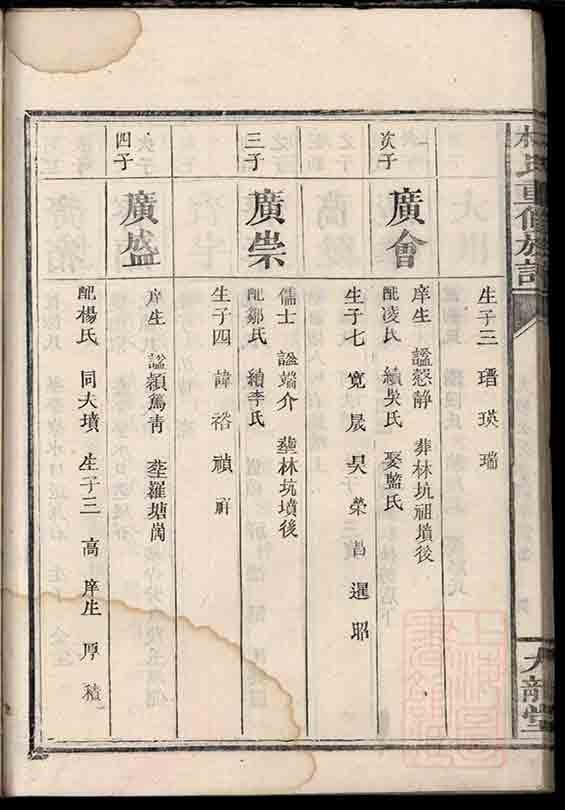 林氏重修族譜
九龍堂
生子三 瑨 瑛 瑞
次子
廣會
庠生 謚慤靜 葬林坑祖墳後
配凌氏 續吳氏 娶藍氏
生子七 寬 晟 昊 榮 昌 暹 昭
三子
廣崇
儒士 謚端介 塟林坑墳後
配鄒氏 續李氏
生子四 諱 裕 禎 祥
四子
廣盛
庠生 謚穎篤青 塟羅塘崗
配楊氏 同夫墳 生子三 高庠生 厚 積